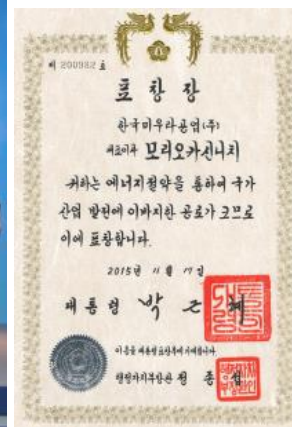 제 200982 호
표 창 장
한국미우라공업(주)
대표이사 모리오카신니치
귀하는 에너지절약을 통하여 국가
산업 발전에 이바지한 공로가 크므로
이에 표창합니다.
2015년 11월 17일
대통령 박 근 혜
이 증을 대통령표창부에 기재합니다
행정자치부장관 정 종 섭